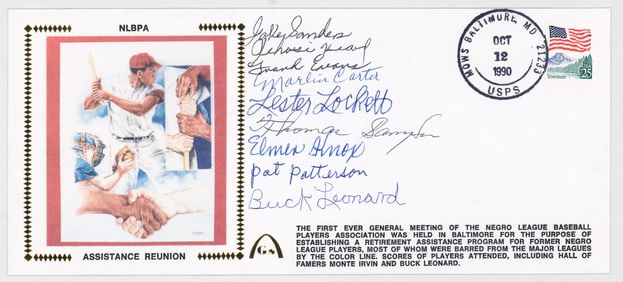 NLBPA
ASSISTANCE REUNION
Frank Evans
Marlin Carter
Lester Lockett
Thomas Sampson
Elmer Knox
Pat Patterson
Buck Leonard
MOWS BALTIMORE, MD 21233
OCT
12
1990
USPS
25
GS
THE FIRST EVER GENERAL MEETING OF THE NEGRO LEAGUE BASEBALL
PLAYERS ASSOCIATION WAS HELD IN BALTIMORE FOR THE PURPOSE OF
ESTABLISHING A RETIREMENT ASSISTANCE PROGRAM FOR FORMER NEGRO
LEAGUE PLAYERS, MOST OF WHOM WERE BARRED FROM THE MAJOR LEAGUES
BY THE COLOR LINE. SCORES OF PLAYERS ATTENDED, INCLUDING HALL OF
FAMERS MONTE IRVIN AND BUCK LEONARD.